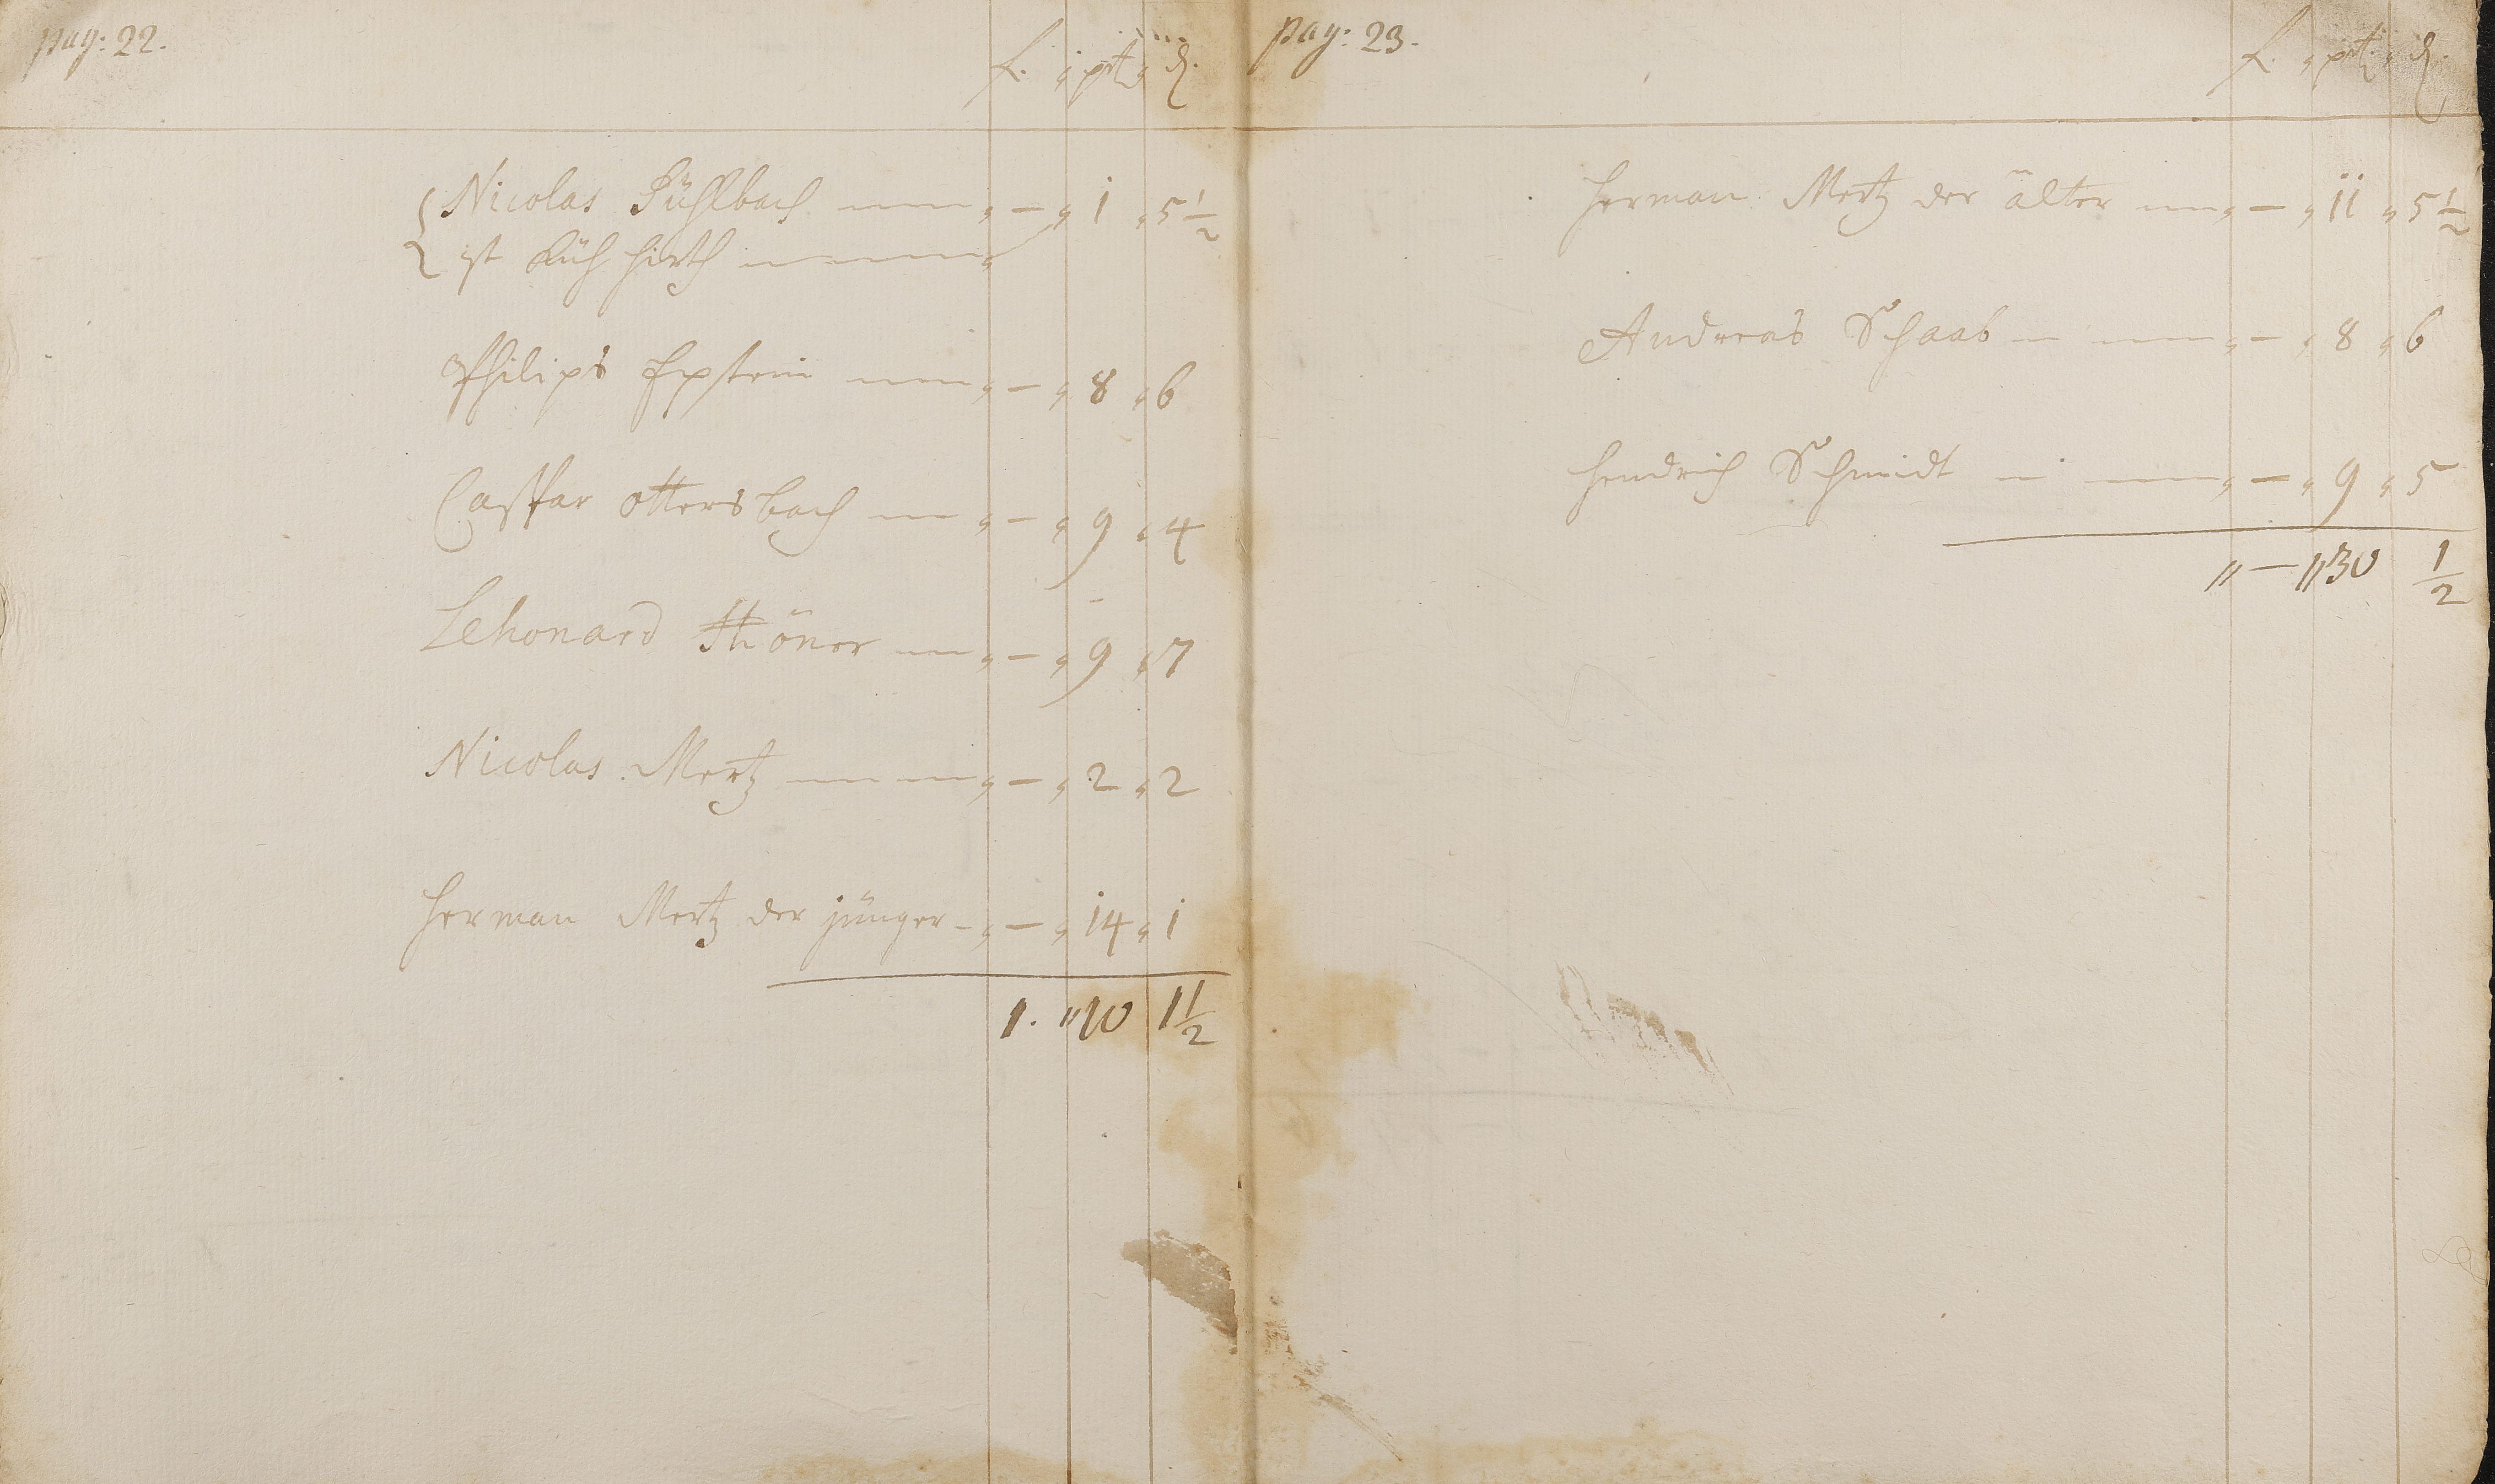 pag: 22.
f. pet. d.
Nicolas Kühlbach — 1 5 1/2
ist Küh hirth
Philips Epstein — 8 6
Casspar ottersbach — 9 4
Lehonard Thöner — 9 7
Nicolas Mertz — 2 2
Herman Mertz der jünger — 14 1
1. 10 1 1/2
pag: 23.
f. pet. d.
Herman Mertz der älter — 11 5 1/2
Andreas Schaab — 8 6
Hendrich Schmidt — 9 5
— 30 1/2